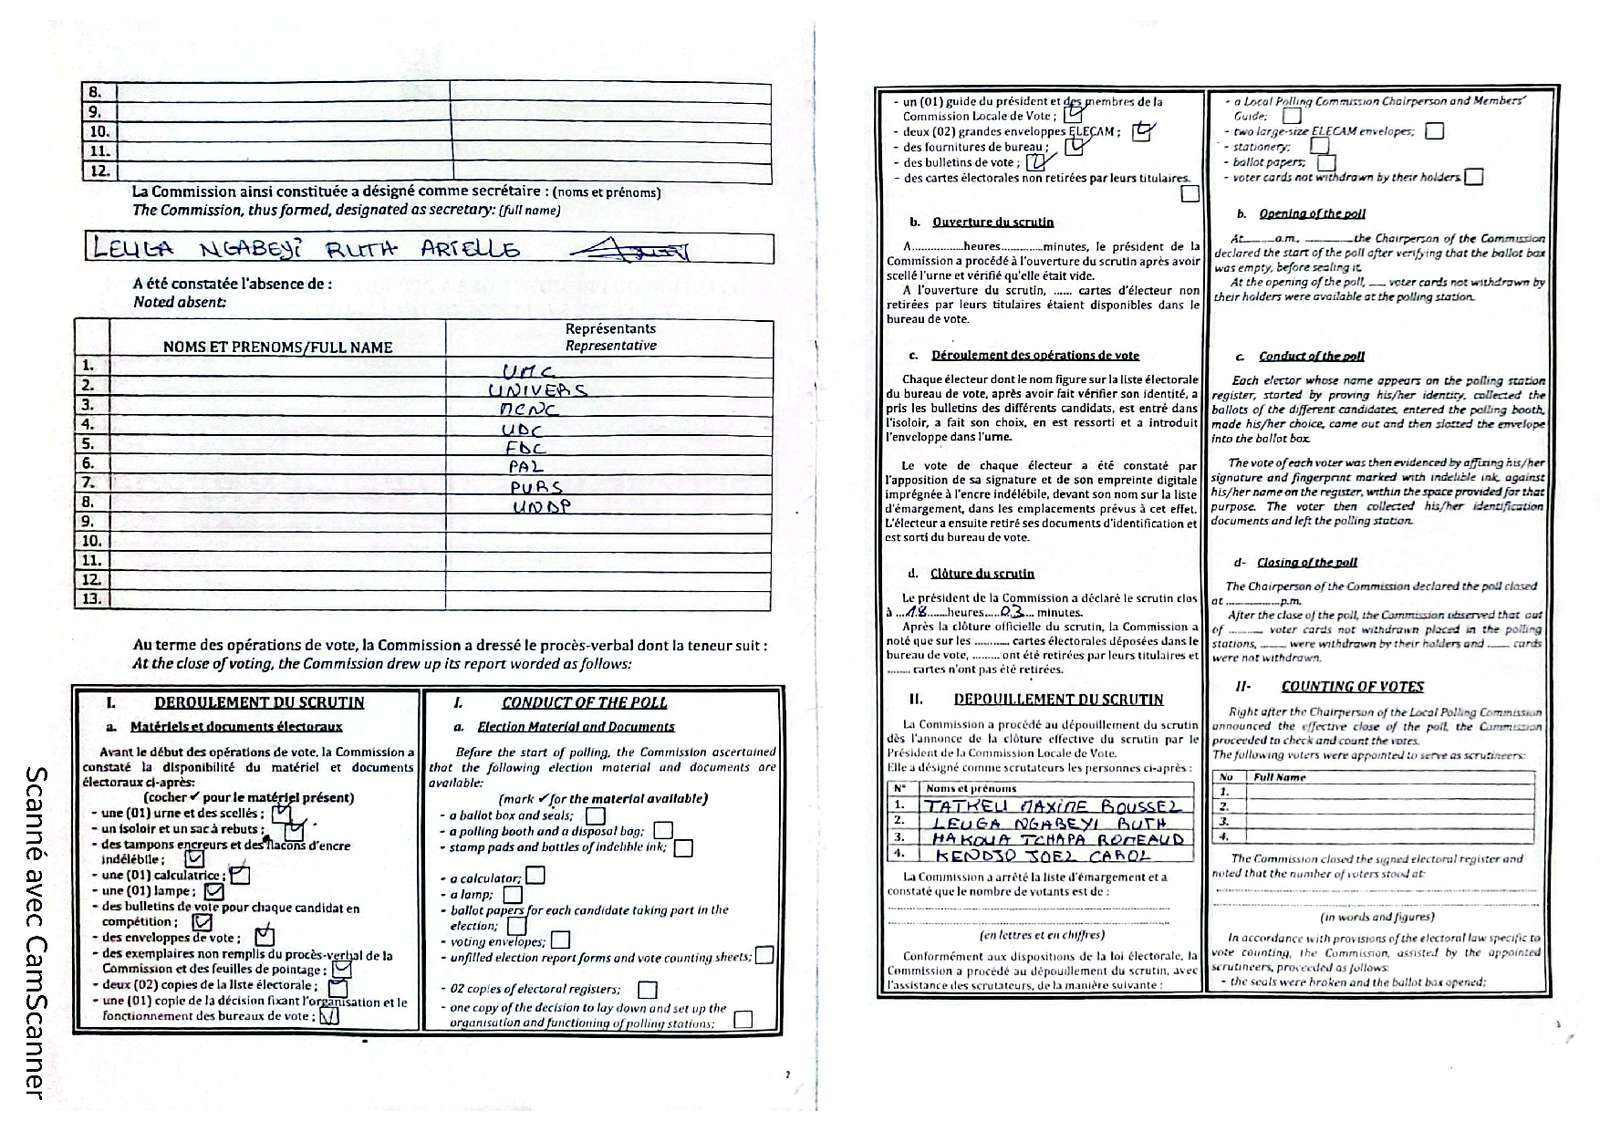 8.
9.
10.
11.
12.
La Commission ainsi constituée a désigné comme secrétaire : (noms et prénoms)
The Commission, thus formed, designated as secretary: (full name)
LEUGA NGABEYI RUTH ARIELLE
A été constatée l'absence de :
Noted absent:
NOMS ET PRENOMS/FULL NAME
Représentants
Representative
1. UMC
2. UNIVERS
3. MCNC
4. UDC
5. FDC
6. PAL
7. PURS
8. UNDP
9.
10.
11.
12.
13.
Au terme des opérations de vote, la Commission a dressé le procès-verbal dont la teneur suit :
At the close of voting, the Commission drew up its report worded as follows:
I. DEROULEMENT DU SCRUTIN
a. Matériels et documents électoraux
Avant le début des opérations de vote, la Commission a
constaté la disponibilité du matériel et documents
électoraux ci-après:
(cocher ✓ pour le matériel présent)
- une (01) urne et des scellés ;
- un isoloir et un sac à rebuts ;
- des tampons encreurs et des flacons d'encre
indélébile ;
- une (01) calculatrice ;
- une (01) lampe ;
- des bulletins de vote pour chaque candidat en
compétition ;
- des enveloppes de vote ;
- des exemplaires non remplis du procès-verbal de la
Commission et des feuilles de pointage ;
- deux (02) copies de la liste électorale ;
- une (01) copie de la décision fixant l'organisation et le
fonctionnement des bureaux de vote ;
I. CONDUCT OF THE POLL
a. Election Material and Documents
Before the start of polling, the Commission ascertained
that the following election material and documents are
available:
(mark ✓ for the material available)
- a ballot box and seals;
- a polling booth and a disposal bag;
- stamp pads and bottles of indelible ink;
- a calculator;
- a lamp;
- ballot papers for each candidate taking part in the
election;
- voting envelopes;
- unfilled election report forms and vote counting sheets;
- 02 copies of electoral registers;
- one copy of the decision to lay down and set up the
organisation and functioning of polling stations;
2
Scanné avec CamScanner
- un (01) guide du président et des membres de la
Commission Locale de Vote ;
- deux (02) grandes enveloppes ELECAM ;
- des fournitures de bureau ;
- des bulletins de vote ;
- des cartes électorales non retirées par leurs titulaires.
b. Ouverture du scrutin
A................heures..............minutes, le président de la
Commission a procédé à l'ouverture du scrutin après avoir
scellé l'urne et vérifié qu'elle était vide.
A l'ouverture du scrutin, ...... cartes d'électeur non
retirées par leurs titulaires étaient disponibles dans le
bureau de vote.
c. Déroulement des opérations de vote
Chaque électeur dont le nom figure sur la liste électorale
du bureau de vote, après avoir fait vérifier son identité, a
pris les bulletins des différents candidats, est entré dans
l'isoloir, a fait son choix, en est ressorti et a introduit
l'enveloppe dans l'urne.
Le vote de chaque électeur a été constaté par
l'apposition de sa signature et de son empreinte digitale
imprégnée à l'encre indélébile, devant son nom sur la liste
d'émargement, dans les emplacements prévus à cet effet.
L'électeur a ensuite retiré ses documents d'identification et
est sorti du bureau de vote.
d. Clôture du scrutin
Le président de la Commission a déclaré le scrutin clos
à ...18......heures.....03... minutes.
Après la clôture officielle du scrutin, la Commission a
noté que sur les .......... cartes électorales déposées dans le
bureau de vote, ........ ont été retirées par leurs titulaires et
...... cartes n'ont pas été retirées.
II. DEPOUILLEMENT DU SCRUTIN
La Commission a procédé au dépouillement du scrutin
dès l'annonce de la clôture effective du scrutin par le
Président de la Commission Locale de Vote.
Elle a désigné comme scrutateurs les personnes ci-après :
N° Noms et prénoms
1. TATKEU MAXIME ROUSSEL
2. LEUGA NGABEYI RUTH
3. HAKOUA TCHAPA ROMEAUD
4. KENDJO JOEL CAROL
La Commission a arrêté la liste d'émargement et a
constaté que le nombre de votants est de :
(en lettres et en chiffres)
Conformément aux dispositions de la loi électorale, la
Commission a procédé au dépouillement du scrutin, avec
l'assistance des scrutateurs, de la manière suivante :
- a Local Polling Commission Chairperson and Members'
Guide;
- two large-size ELECAM envelopes;
- stationery;
- ballot papers;
- voter cards not withdrawn by their holders.
b. Opening of the poll
At.........a.m, ..............the Chairperson of the Commission
declared the start of the poll after verifying that the ballot box
was empty, before sealing it.
At the opening of the poll, ...... voter cards not withdrawn by
their holders were available at the polling station.
c. Conduct of the poll
Each elector whose name appears on the polling station
register, started by proving his/her identity, collected the
ballots of the different candidates, entered the polling booth,
made his/her choice, came out and then slotted the envelope
into the ballot box.
The vote of each voter was then evidenced by affixing his/her
signature and fingerprint marked with indelible ink, against
his/her name on the register, within the space provided for that
purpose. The voter then collected his/her identification
documents and left the polling station.
d- Closing of the poll
The Chairperson of the Commission declared the poll closed
at ................p.m.
After the close of the poll, the Commission observed that out
of .......... voter cards not withdrawn placed in the polling
stations, ....... were withdrawn by their holders and ...... cards
were not withdrawn.
II- COUNTING OF VOTES
Right after the Chairperson of the Local Polling Commission
announced the effective close of the poll, the Commission
proceeded to check and count the votes.
The following voters were appointed to serve as scrutineers:
No Full Name
1.
2.
3.
4.
The Commission closed the signed electoral register and
noted that the number of voters stood at:
(in words and figures)
In accordance with provisions of the electoral law specific to
vote counting, the Commission, assisted by the appointed
scrutineers, proceeded as follows:
- the seals were broken and the ballot box opened;
3